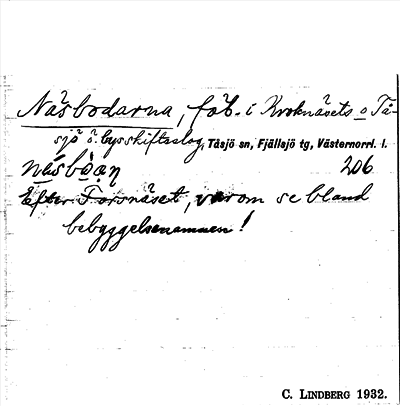 Näsbodarna, fäb. i Kroknäsets o Tå-
sjö ö. bys skifteslag, Tåsjö sn, Fjällsjö tg, Västernorrl. l.
206
Efter Torsnäset, varom se bland
bebyggelsenamnen!
C. LINDBERG 1932.